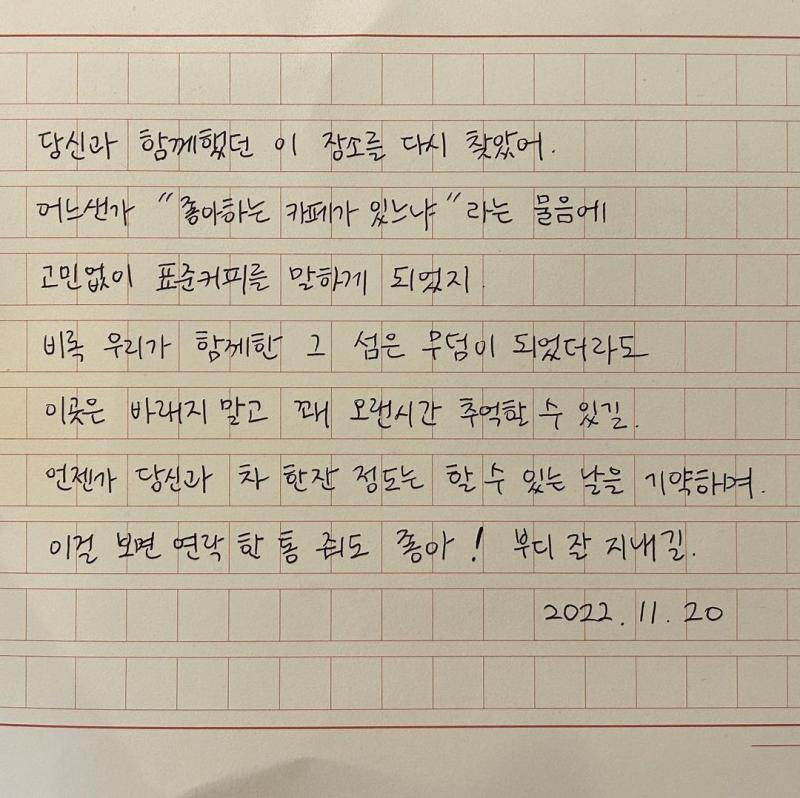 당신과 함께했던 이 장소를 다시 찾았어.
어느샌가 "좋아하는 카페가 있느냐"라는 물음에
고민없이 표준커피를 말하게 되었지.
비록 우리가 함께한 그 섬은 무덤이 되었더라도
이곳은 바래지 말고 꽤 오랜시간 추억할 수 있길.
언젠가 당신과 차 한잔 정도는 할 수 있는 날을 기약하며.
이걸 보면 연락 한 통 줘도 좋아! 부디 잘 지내길.
2022. 11. 20